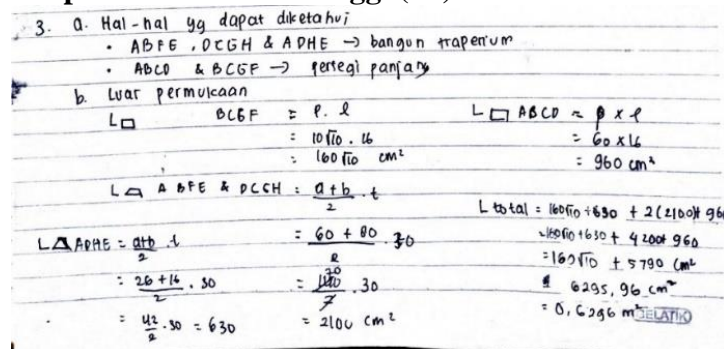 3. a. Hal-hal yg dapat diketahui
• ABFE, DCGH & ADHE → bangun trapesium
• ABCD & BCGF → persegi panjang
b. Luar permukaan
L□ BCGF = p. l
= 10√10 . 16
= 160√10 cm²
L□ ABCD = p x l
= 60 x 16
= 960 cm²
L ABFE & DCGH = a + b / 2 . t
= 60 + 80 / 2 . 30
= 140 / 2 . 30
= 2100 cm²
L ADHE = a+b / 2 . t
= 26 + 16 / 2 . 30
= 42 / 2 . 30 = 630
L total = 160√10 + 630 + 2(2100) + 960
= 160√10 + 630 + 4200 + 960
= 160√10 + 5790 cm²
6295,96 cm²
= 0,6296 m²
JELATIK